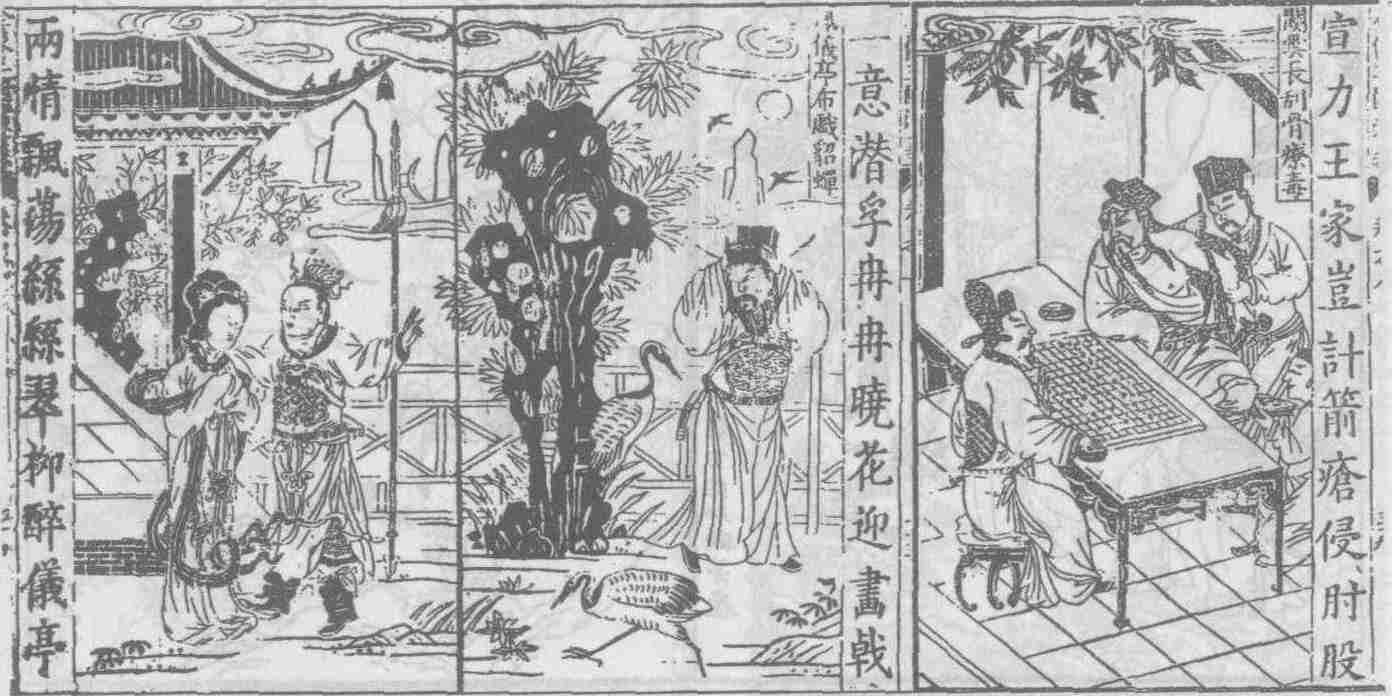 宣力王家豈計箭瘡侵肘股
關雲長刮骨療毒
一意潛孚冉冉曉花迎畫戟
儀亭布戲貂蟬
兩情飄蕩絲絲翠柳醉儀亭